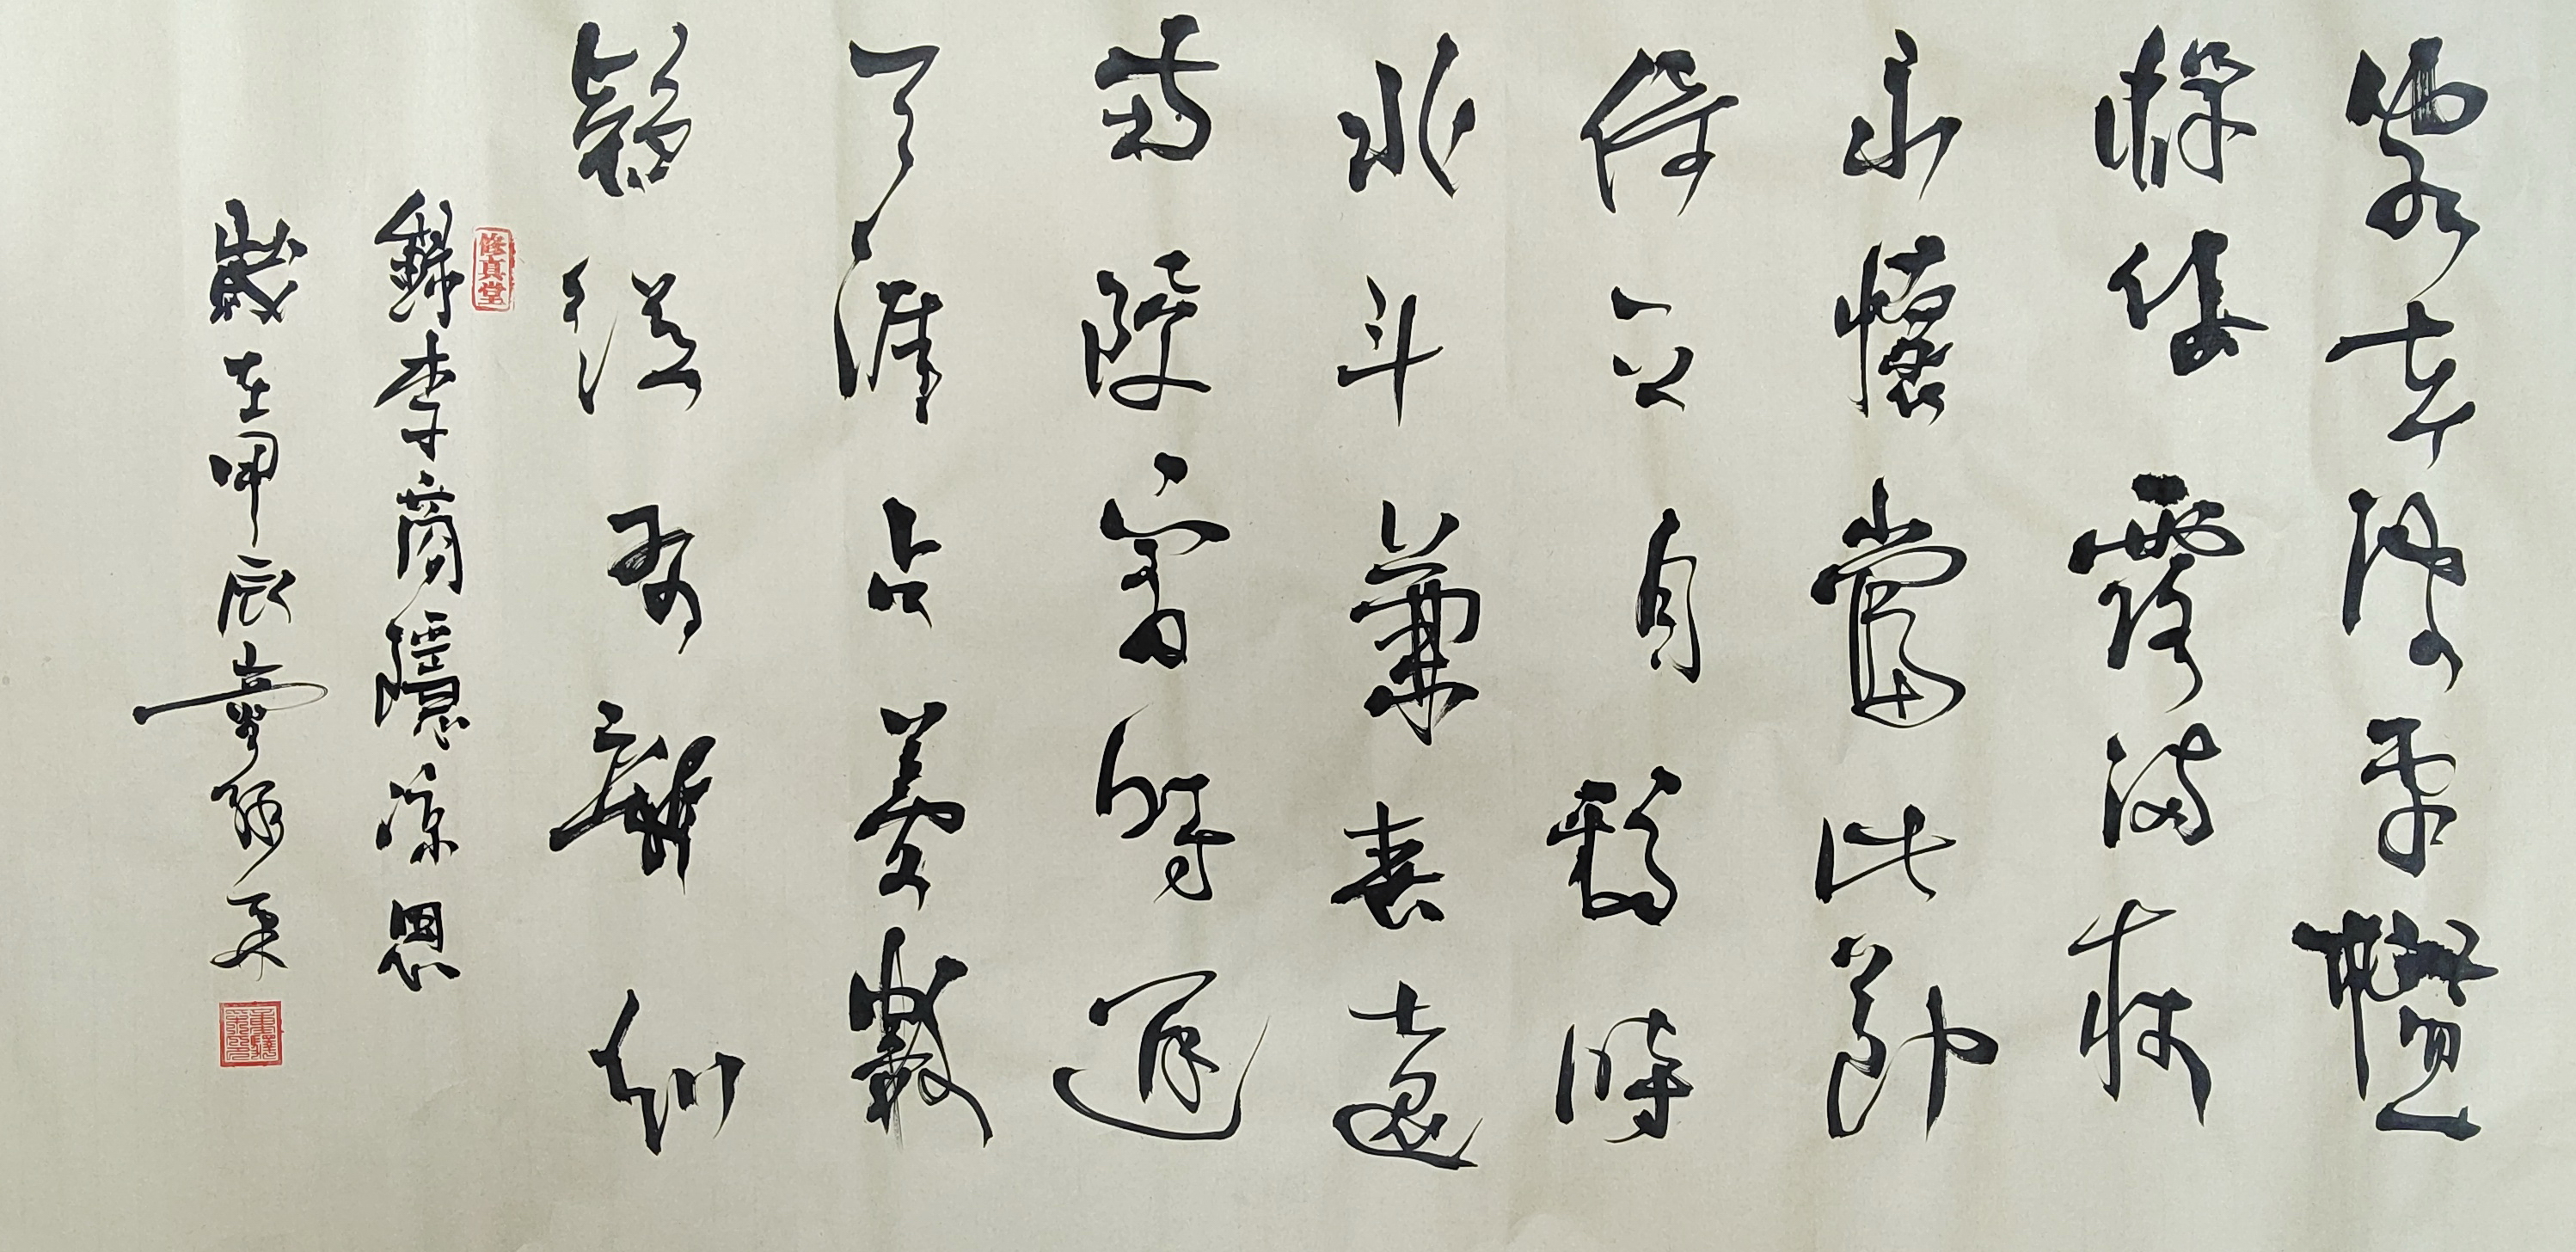 客去波平檻
蟬休露滿枝
永懷當此節
倚立自移時
北斗兼春遠
南陵寓使遲
天涯占夢數
疑誤有新知
修真堂
錄李商隱涼思
歲在甲辰